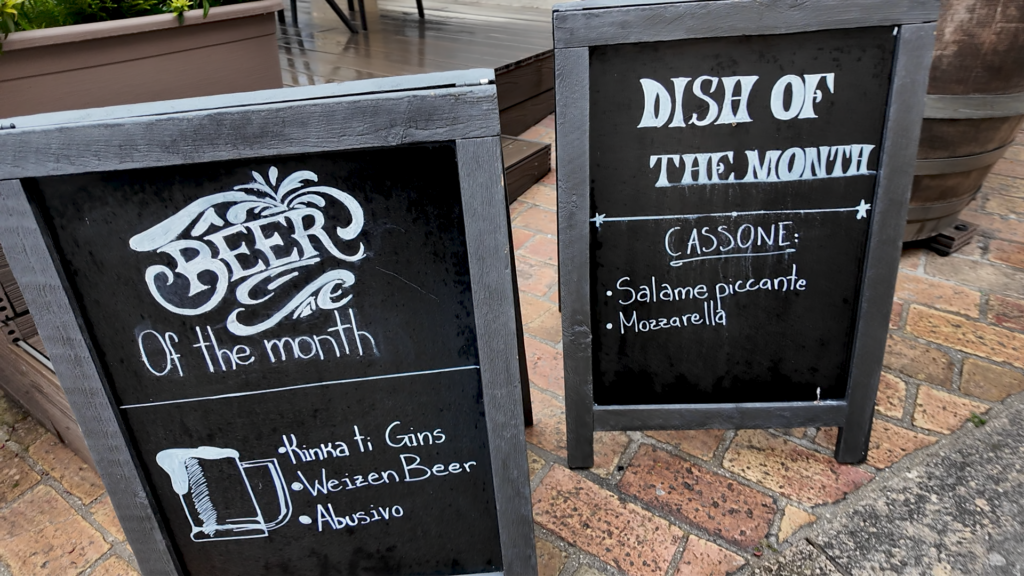 BEER
Of the month
•Kinkati Gins
•Weizen Beer
•Abusivo
DISH OF
THE MONTH
CASSONE:
•Salame piccante
•Mozzarella